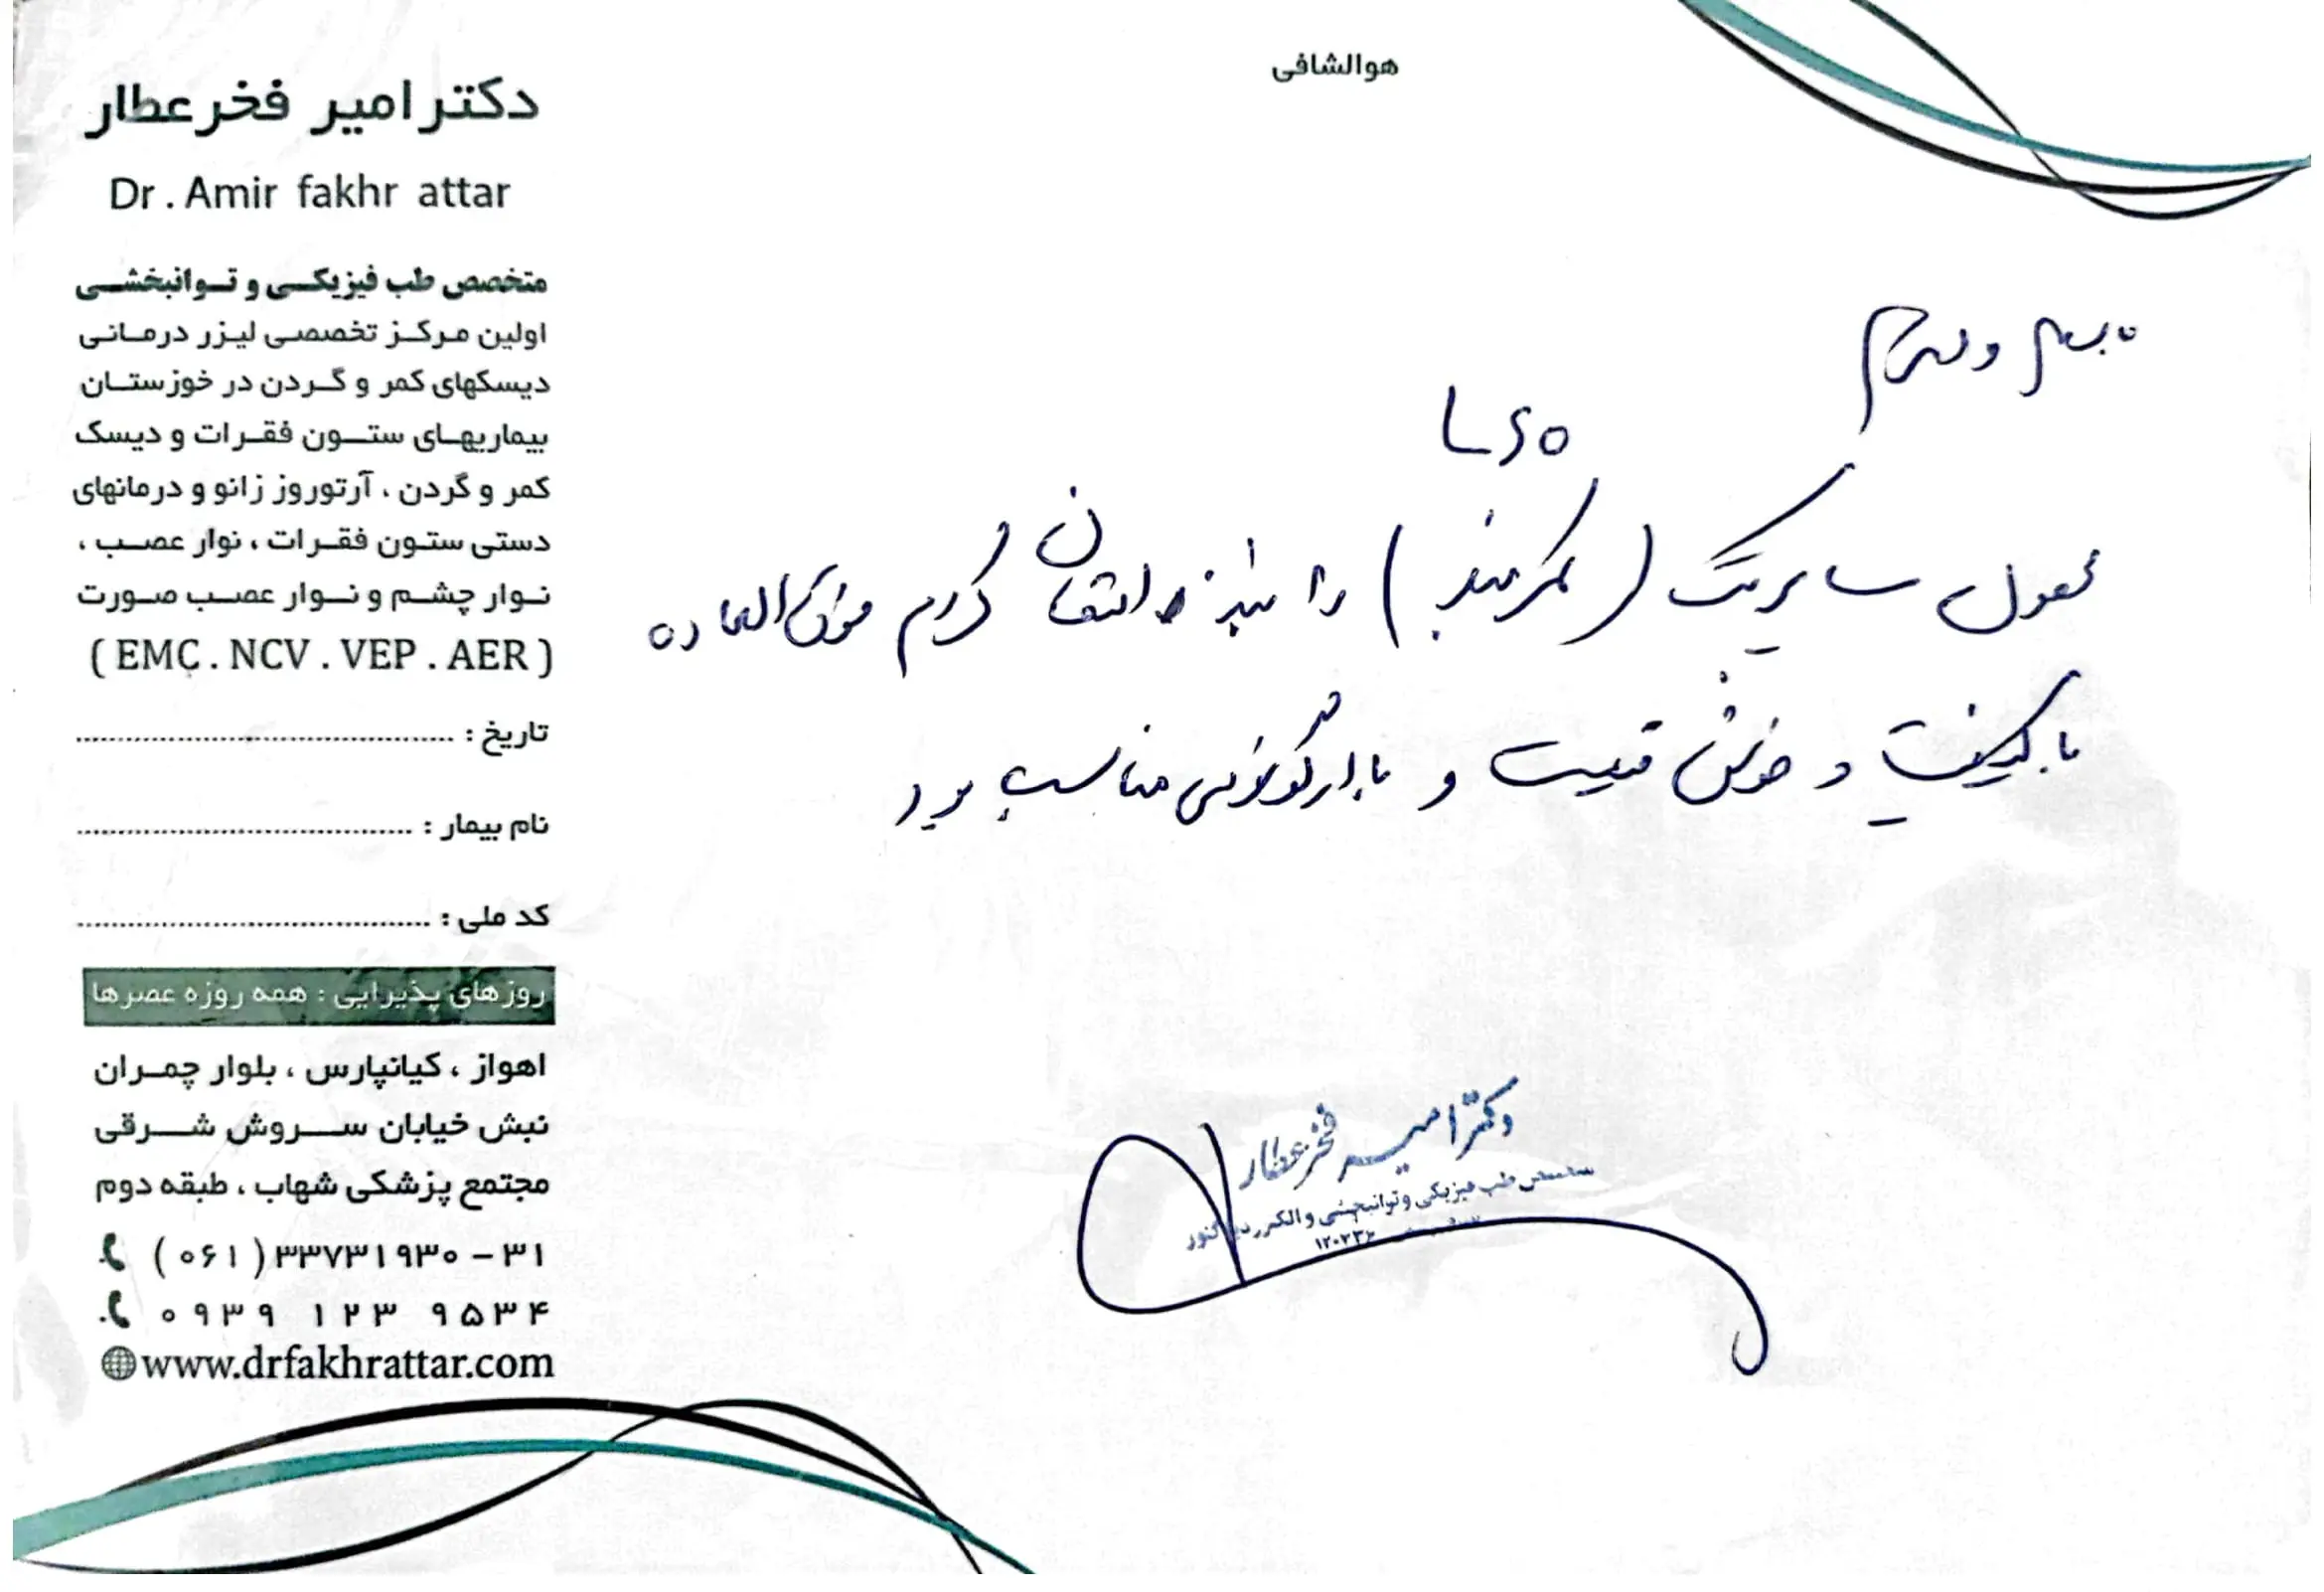 هوالشافی
دکتر امیر فخرعطار
Dr . Amir fakhr attar
متخصص طب فیزیکی و توانبخشی
اولین مرکز تخصصی لیزر درمانی
دیسکهای کمر و گردن در خوزستان
بیماریهای ستون فقرات و دیسک
کمر و گردن ، آرتوروز زانو و درمانهای
دستی ستون فقرات ، نوار عصب ،
نوار چشم و نوار عصب صورت
( EMC . NCV . VEP . AER )
تاریخ :
نام بیمار :
کد ملی :
روزهای پذیرایی : همه روزه عصرها
اهواز ، کیانپارس ، بلوار چمران
نبش خیابان سروش شرقی
مجتمع پزشکی شهاب ، طبقه دوم
(۰۶۱) ۳۳۷۳۱۹۳۰ - ۳۱
۰۹۳۹ ۱۲۳ ۹۵۳۴
www.drfakhrattar.com
با سلام و احترام
LSO
محصول سابرینگ ( کمربند ) را بنده امتحان کردم فوق العاده
با کیفیت و خوش قیمت و با ارگونومی مناسب بود
دکتر امیر فخرعطار
متخصص طب فیزیکی و توانبخشی و الکترودیاگنوز